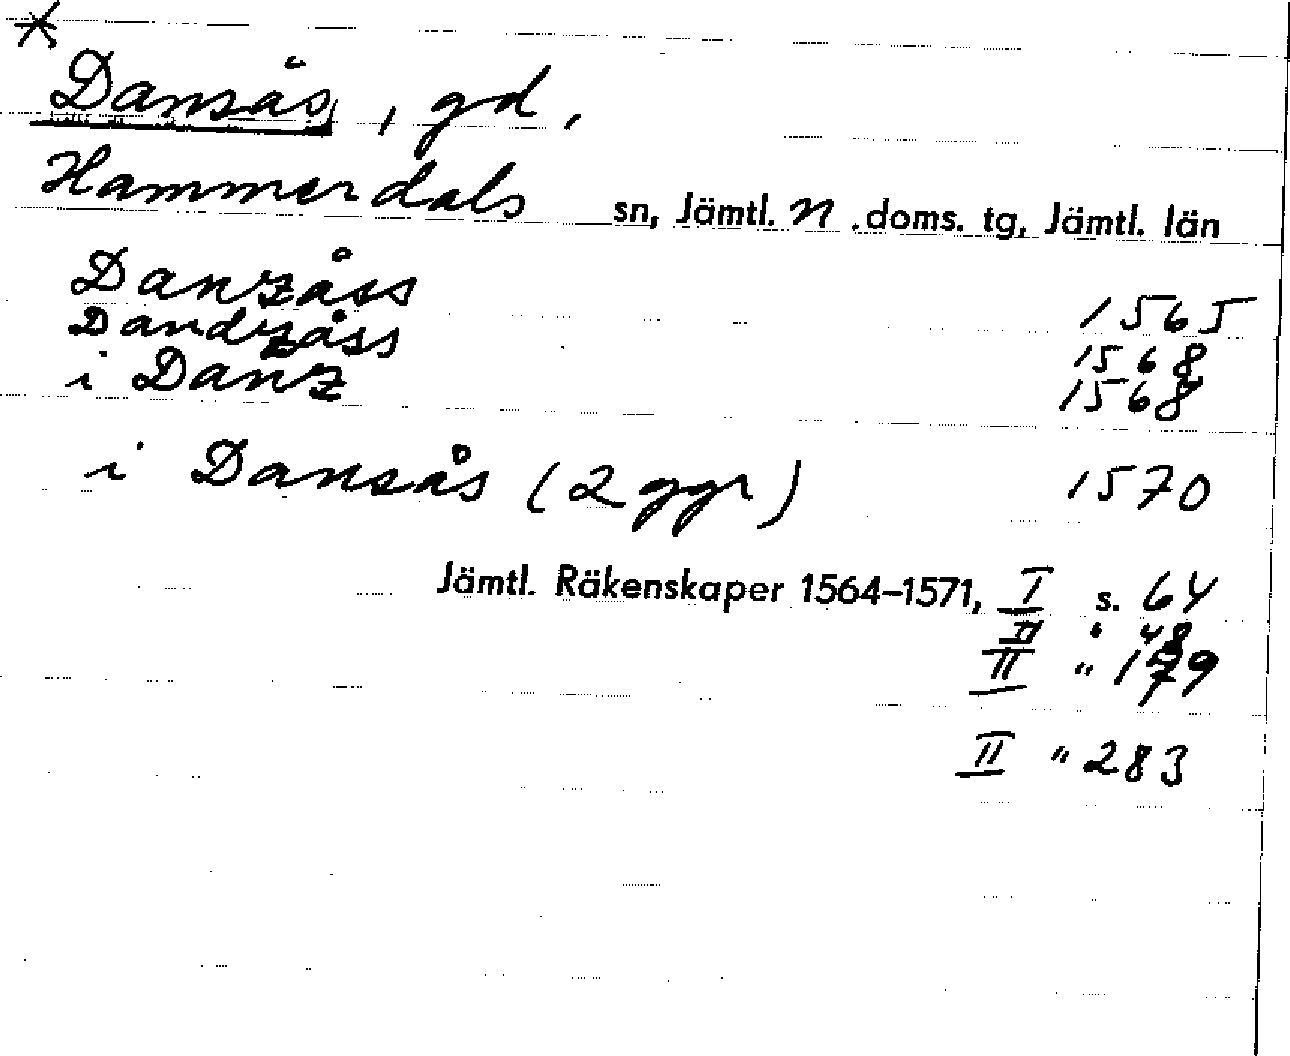 *
Dansås, gd,
Hammerdals sn, Jämtl. n. doms. tg, Jämtl. län
Danzåss 1565
Dandzåss 1568
i Danz 1568
i Dansås (2 ggr) 1570
Jämtl. Räkenskaper 1564–1571, I s. 64
II " 48
II " 179
II " 283